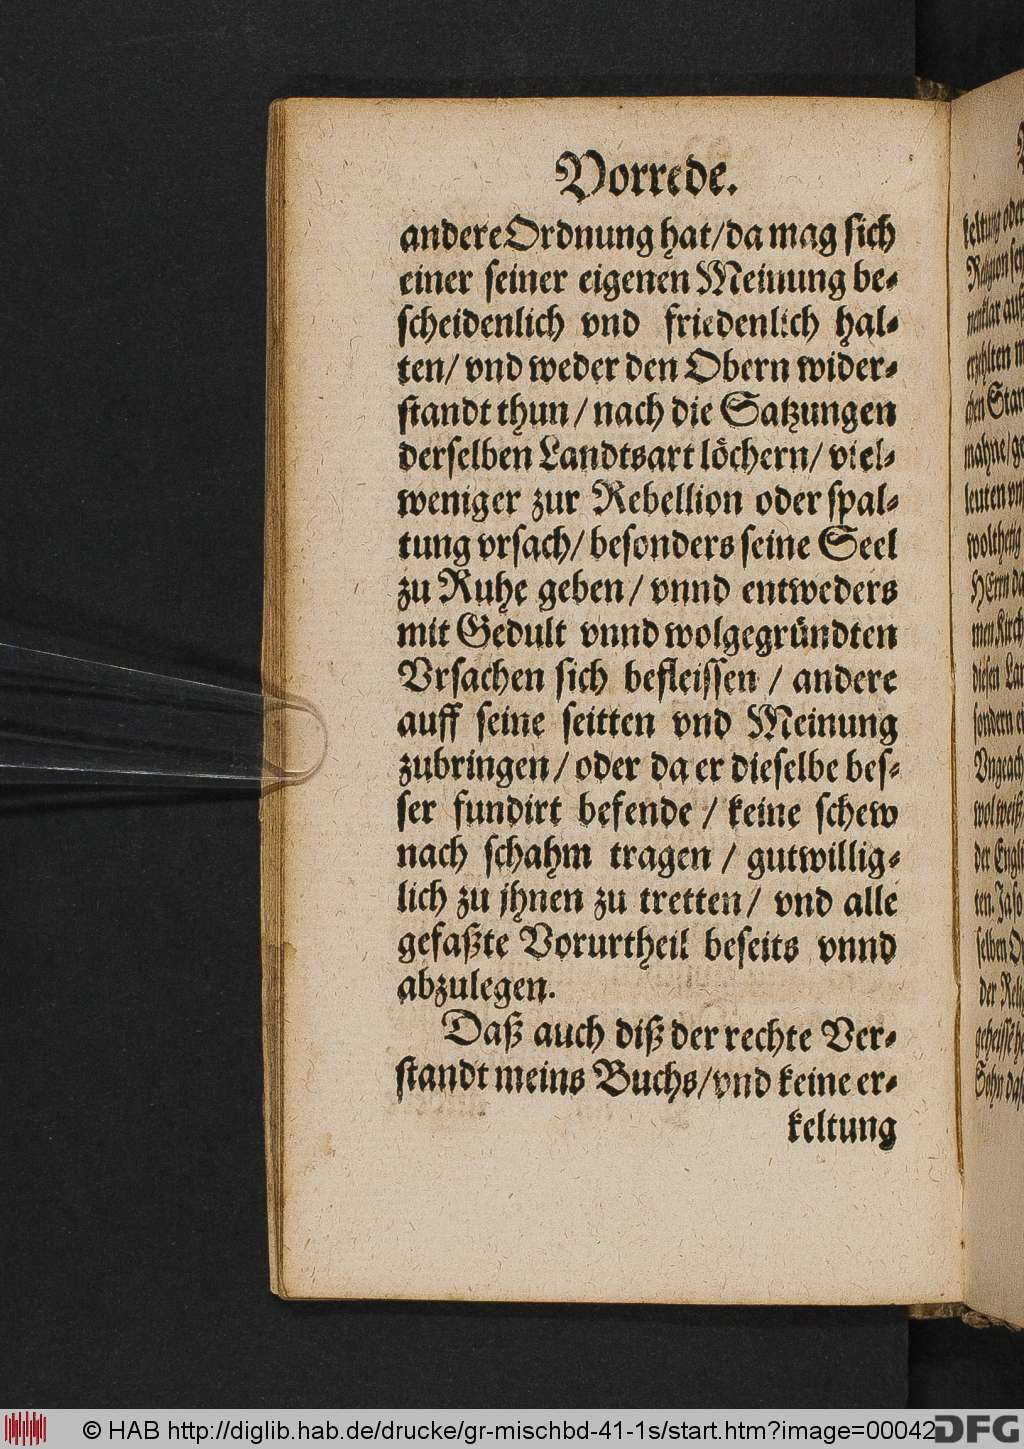 Vorrede.
andere Ordnung hat/ da mag sich
einer seiner eigenen Meinung be-
scheidenlich vnd friedenlich hal-
ten/ vnd weder den Obern wider-
standt thun / nach die Satzungen
derselben Landtsart löchern/ viel-
weniger zur Rebellion oder spal-
tung vrsach/ besonders seine Seel
zu Ruhe geben / vnnd entweders
mit Gedult vnnd wolgegründten
Vrsachen sich befleissen / andere
auff seine seitten vnd Meinung
zubringen / oder da er dieselbe bes-
ser fundirt befende / keine schew
nach schahm tragen / gutwillig-
lich zu jhnen zu tretten/ vnd alle
gefaßte Vorurtheil beseits vnnd
abzulegen.
Daß auch diß der rechte Ver-
standt meins Buchs/ vnd keine er-
keltung
keltung oder
Religion
nenklar auß
erzehlten
mahne/
leuten
HErrn
men Kirch
diesen
sondern
Vngeach
wol weiß
der Engli
ten.
selben
der
Sohn daß
© HAB http://diglib.hab.de/drucke/gr-mischbd-41-1s/start.htm?image=00042
DFG